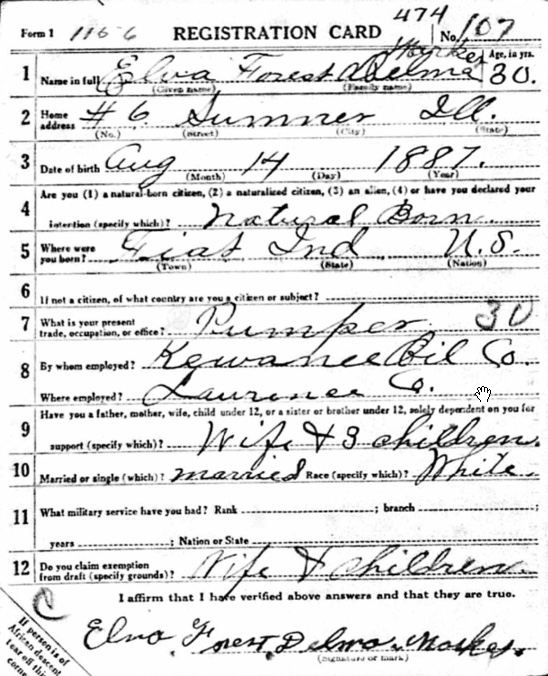 474
Form 1 116-6 REGISTRATION CARD No. 107
1 Name in full Elva Forest Delma Age, in yrs. 30.
(Given name) (Family name)
2 Home address # 6 Sumner Ill.
(No.) (Street) (City) (State)
3 Date of birth Aug 14 1887.
(Month) (Day) (Year)
4 Are you (1) a natural-born citizen, (2) a naturalized citizen, (3) an alien, (4) or have you declared your
intention (specify which)? Natural Born
5 Where were you born? Fiat Ind U.S.
(Town) (State) (Nation)
6 If not a citizen, of what country are you a citizen or subject?
7 What is your present trade, occupation, or office? Pumper 30
8 By whom employed? Kewanee Oil Co.
Where employed? Laurence Co.
9 Have you a father, mother, wife, child under 12, or a sister or brother under 12, solely dependent on you for
support (specify which)? Wife & 3 children.
10 Married or single (which)? married Race (specify which)? White
11 What military service have you had? Rank ; branch ;
years ; Nation or State
12 Do you claim exemption from draft (specify grounds)? Wife & children
I affirm that I have verified above answers and that they are true.
Elva Forest Delma
(Signature or mark)
If person is of
African descent
tear off this
corner